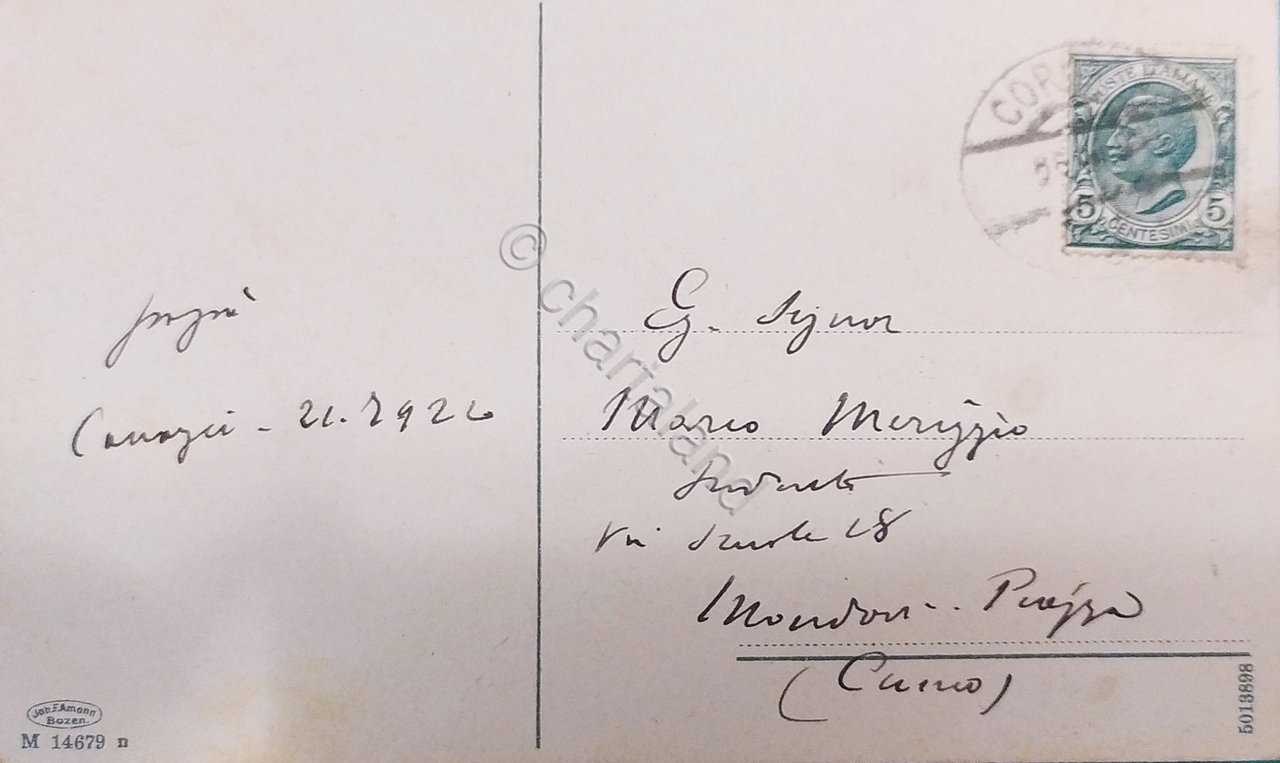 Canazei - 21.7.922
Eg. Signor
Marco Meriggio
Studente
Via Scuole 18
Mondovi - Piazza
(Cuneo)
COR
POSTE ITALIANE
5 5
CENTESIMI
© chartaland
Joh. F. Amonn
Bozen.
M 14679 n
5013898